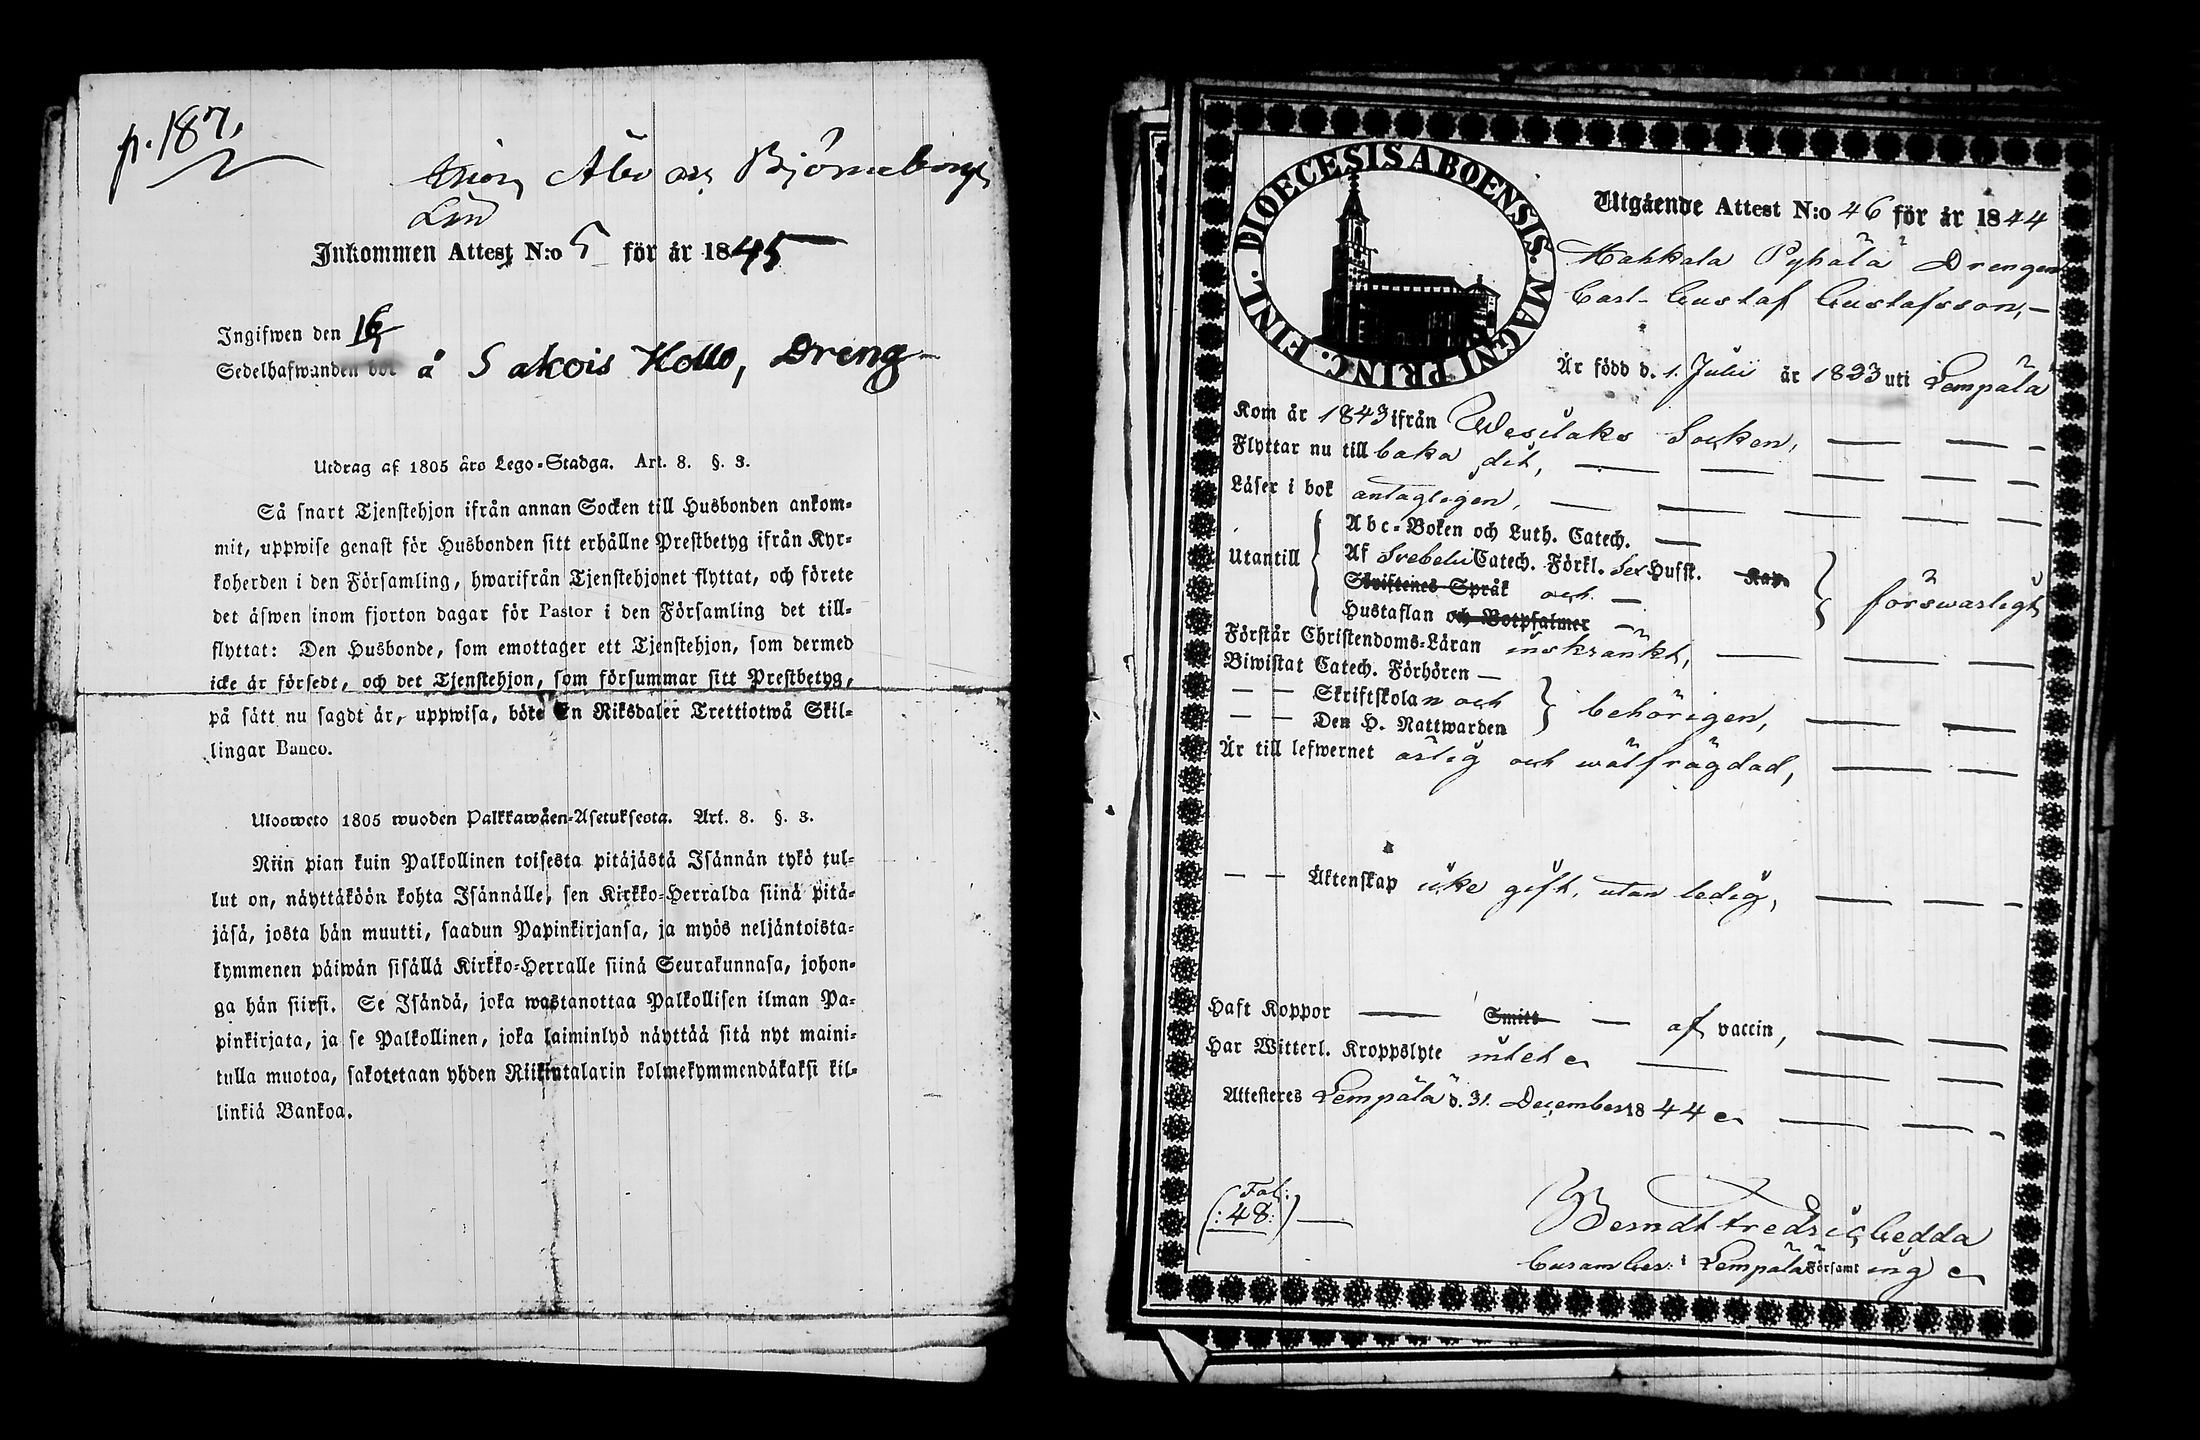 p. 187.
från Åbo och Björneborgs
Län
Inkommen Attest N:o 5 för år 1845
Ingifwen den 16
Sedelhafwanden bor å Sakois Kollo, Dreng
Utdrag af 1805 års Lego-Stadga. Art. 8. §. 3.
Så snart Tjenstehjon ifrån annan Socken till Husbonden ankom-
mit, uppwise genast för Husbonden sitt erhållne Prestbetyg ifrån Kyr-
koherden i den Församling, hwarifrån Tjenstehjonet flyttat, och förete
det äfwen inom fjorton dagar för Pastor i den Församling det till-
flyttat: Den Husbonde, som emottager ett Tjenstehjon, som dermed
icke är försedt, och det Tjenstehjon, som försummar sitt Prestbetyg,
på sätt nu sagdt är, uppwisa, böte En Riksdaler Trettiotwå Skil-
lingar Banco.
Ulosweto 1805 wuoden Palkkawäen-Asetuksesta. Art. 8. §. 3.
Niin pian kuin Palkollinen toisesta pitäjästä Isännän tykö tul-
lut on, näyttäköön kohta Isännälle, sen Kirkko-Herralda siinä pitä-
jäsä, josta hän muutti, saadun Papinkirjansa, ja myös neljäntoista-
kymmenen päiwän sisällä Kirkko-Herralle siinä Seurakunnasa, johon-
ga hän siirsi. Se Isändä, joka wastanottaa Palkollisen ilman Pa-
pinkirjata, ja se Palkollinen, joka laiminlyö näyttää sitä nyt maini-
tulla muotoa, sakotetaan yhden Riikintalarin kolmekymmendäkaksi kil-
linkiä Bankoa.
DIOECESIS ABOENSIS. MAGNI PRINC. FINL.
Utgående Attest N:o 46 för år 1844
Mahkala Pyhälä Drengen
Carl Gustaf Gustafsson,
Är född d. 1. Julii år 1823 uti Lempälä
Kom år 1843 ifrån Wesilaks Socken,
Flyttar nu till baka dit,
Läser i bok antagligen,
Abc-Boken och Luth. Catech.
Utantill Af Svebelii Catech. Förkl. Sex Hufst. Kap.
Skriftenes Språk och
Hustaflan och Botpsalmer
försvarligt
Förstår Christendoms-Läran inskränkt,
Biwistat Catech. Förhören
Skriftskolan och
Den H. Nattwarden
behörigen,
Är till lefwernet ärlig och wälfrägdad,
Äktenskap icke gift, utan ledig,
Haft Koppor Smitt af vaccin,
Har Witterl. Kroppslyte intet
Attesteres Lempälä d. 31. December 1844
(: Fol: 48:)
Berndt Fredric Gedda
i Lempälä Församling